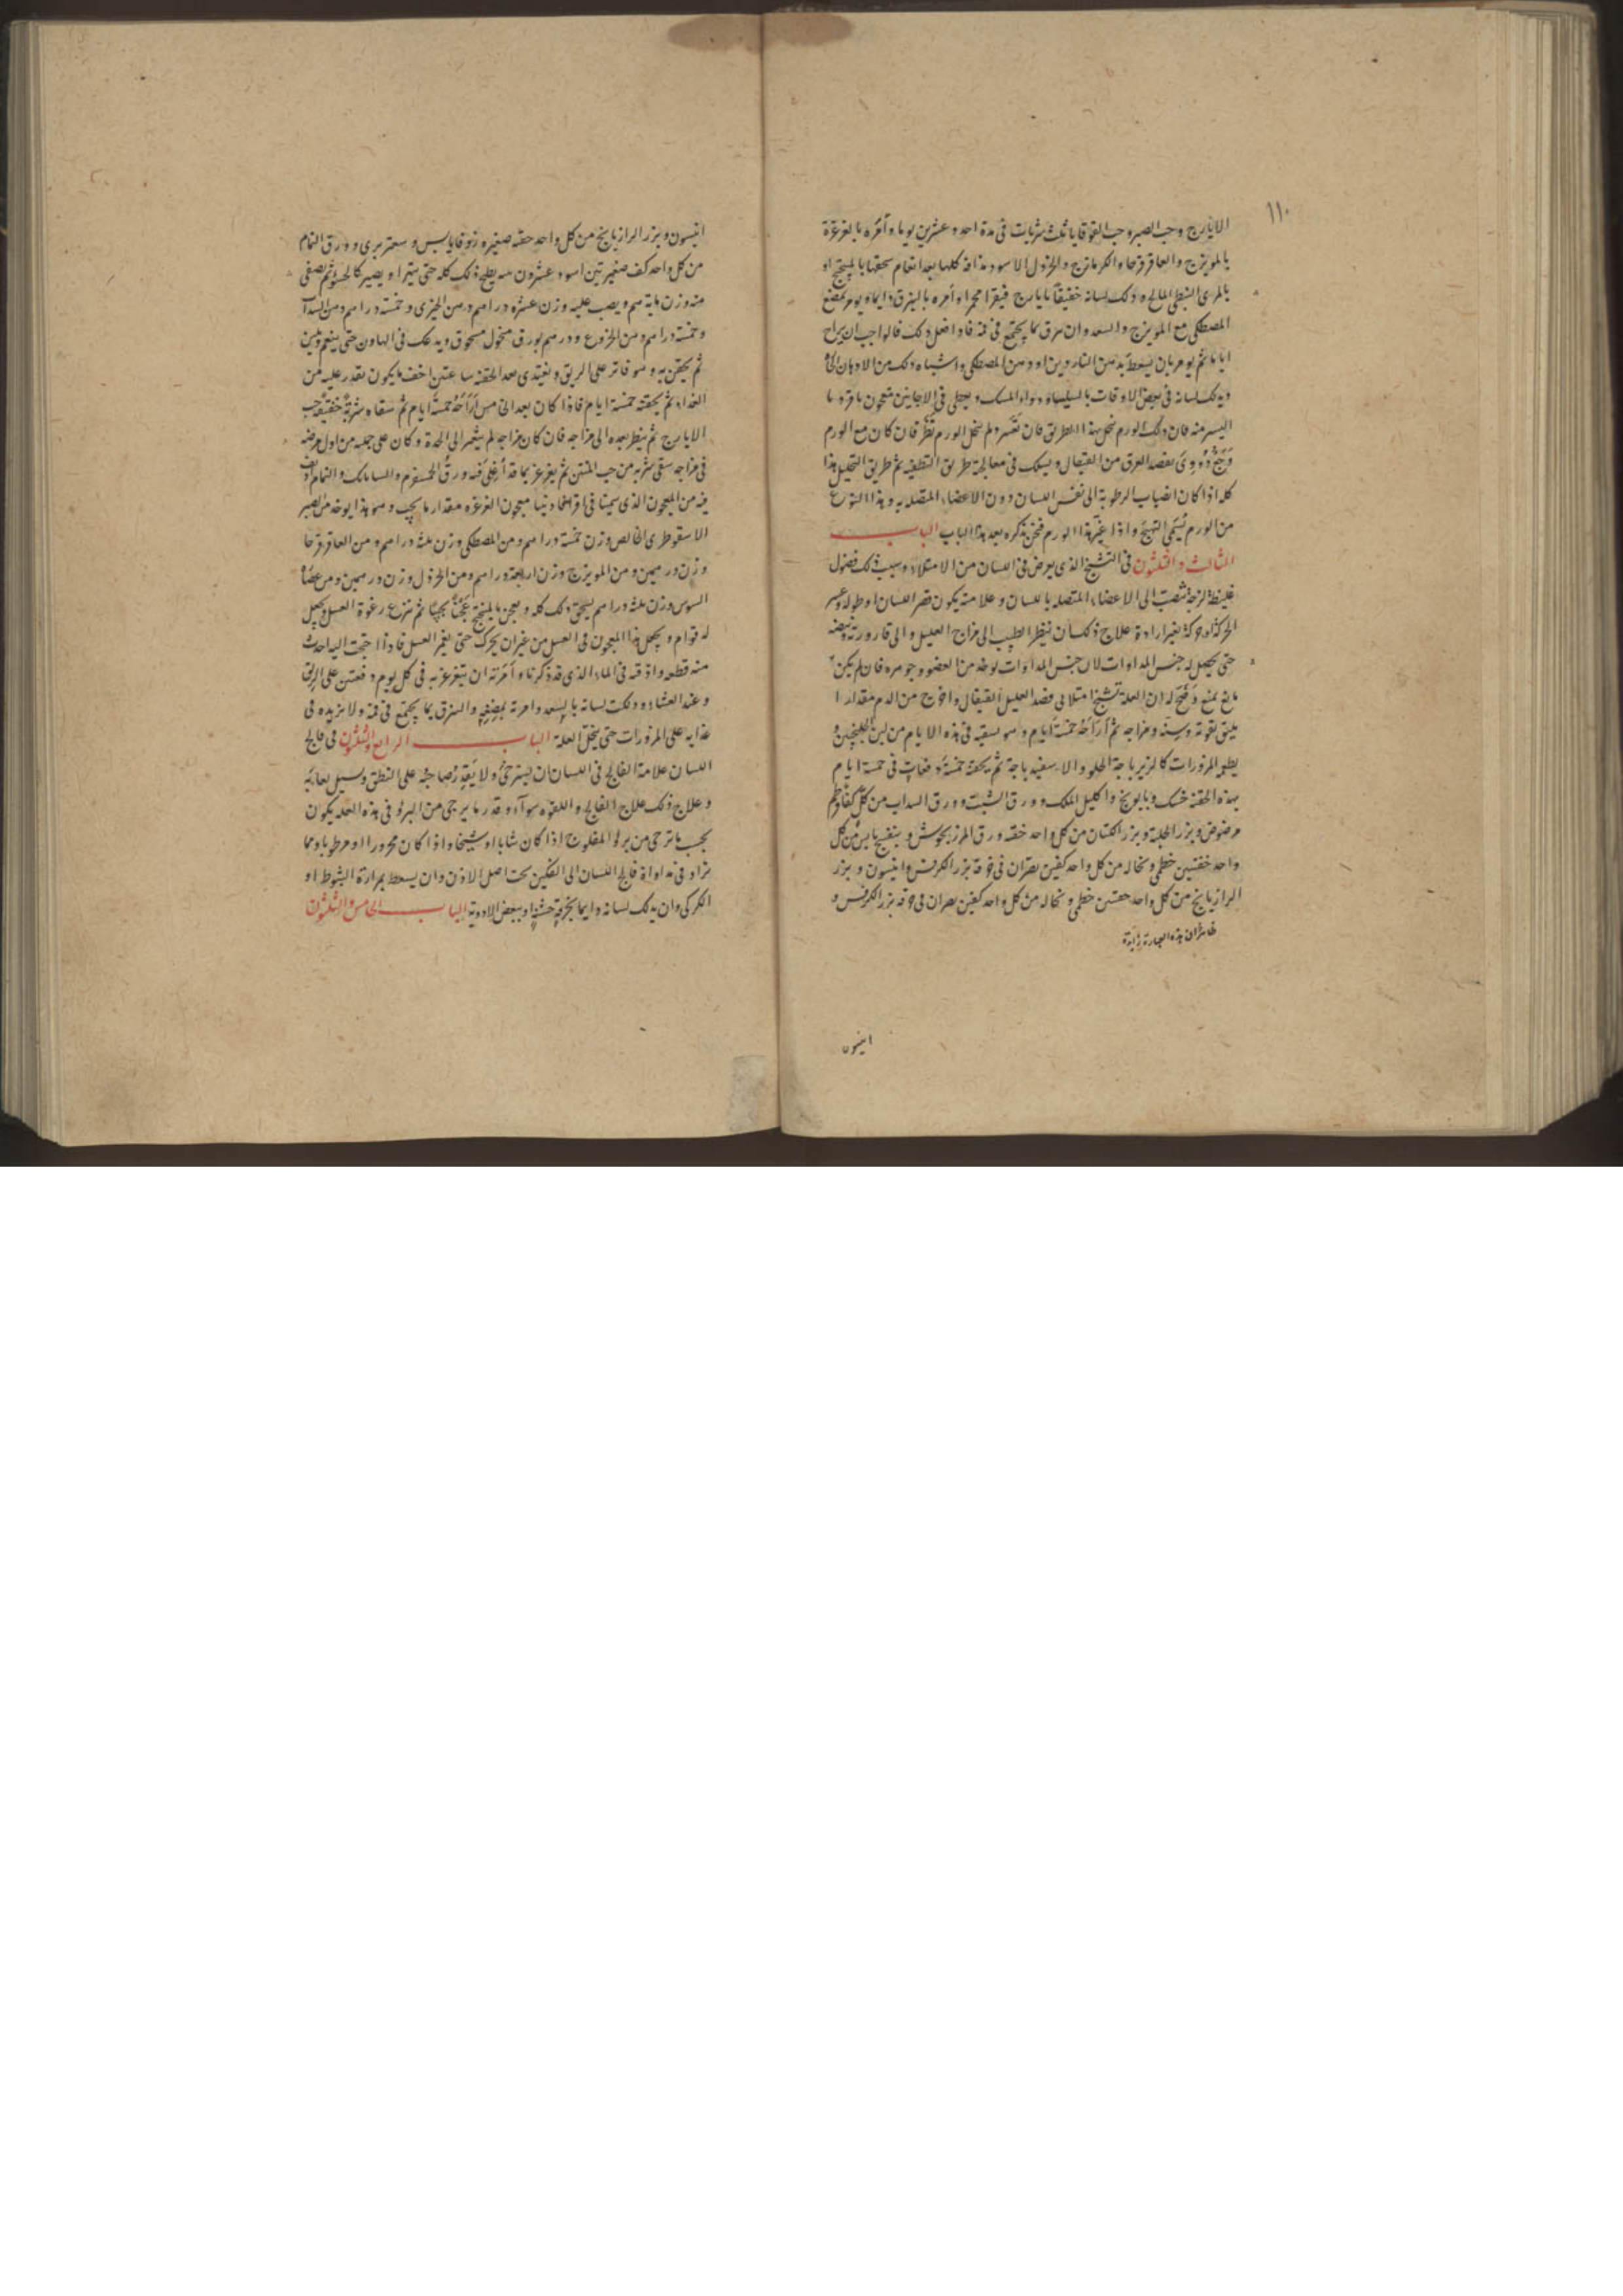 ١١٠
الايارج وحب الصبر وحب القوقايا ثلث شربات فى مدة احد وعشرين يوما وآمره بالغرغرة
بالمويزج والعاقرقرحا والكرمازج والخردل الاسود مدافه كلها بعد انعام سحقها بالميبختج او
بالمرى النبطى المالح ودلك لسانه خفيفا بايارج فيقرا محمرا وأمره بالبزق دايما ويومر بمضغ
المصطكى مع المويزج والسعد وان يبزق بما يجتمع فى فمه فاذا فعل ذلك فالواجب ان يراح
اياما ثم يومر بان يسعط بدهن الناردين او دهن المصطكى واشباه ذلك من الادهان
ويدلك لسانه فى بعض الاوقات بالسليساه ودواء المسك ويعطى فى الاحايين معجون
اليسير منه فان ذلك الورم ينحل بهذا الطريق فان تعسر ولم ينحل الورم نظر فان كان مع الورم
وجع دووى بفصد العرق من القيفال ويسلك فى معالجة طريق التطفيه ثم طريق التحليل هذا
كله اذا كان انصباب الرطوبة الى نفس اللسان دون الاعضاء المتصله به وهذا النوع
من الورم يسمى التهيج واذا غير هذا الورم فنحن نذكره بعد هذا الباب الباب
الثالث والثلثون فى التشنج الذى يعرض فى اللسان من الامتلاء وسبب ذلك فضول
غليظة لزجة تنصب الى الاعضاء المتصله باللسان وعلامته يكون قصر اللسان او طوله وعسر
الحركة او حركة بغير ارادة علاج ذلك ان ينظر الطبيب الى مزاج العليل والى قارورته ونبضه
حتى يحصل له جنس المداوات لان جنس المداوات يوخذ من العضو وجوهره فان لم يكن
مانع يمنع وضح له ان العلة تشنج امتلائى فصد العليل القيفال واخرج من الدم مقدار ا
يليق بقوته وسنه ومزاجه ثم اراحه خمسة ايام وهو يسقيه فى هذه الايام من لين الجلنجبين و
يطعمه المزورات كالزيرباجة الحلو والاسفيدباجة ثم يحقنه خمس دفعات فى خمسة ايام
بهذه الحقنه خسك وبابونج واكليل الملك وورق الشبت وورق السداب من كل كفا وقرطم
مرضوض وبزر الحلبة وبزر الكتان من كل واحد حفنه ورق المرزنجوش وبنفسج يابس من كل
واحد حفنتين خطمى ونخاله من كل واحد كفين يصران فى خرقة بزر الكرفس وانيسون وبزر
الرازيانج من كل واحد حفنتين خطمى ونخاله من كل واحد كفين يصران فى خرقه بزر الكرفس و
ظاهرا ان هذه العبارة زايدة
انيسون
انيسون وبزر الرازيانج من كل واحد حفنه صغيره زوفا يابس وسعتر برى وورق النمام
من كل واحد كف صغير تين اسود عشرون عدد يطبخ ذلك كله حتى يتهرا ويصير كالحسو ثم يصفى
منه وزن مايه درهم ويصب عليه وزن عشره دراهم دهن الخيرى وخمسة دراهم دهن السداب
وخمسة دراهم دهن الخروع ودرهم بورق منخول مسحوق ويدعك فى الهاون حتى ينعم ويلين
ثم يحقن به وهو فاتر على الريق ويغتدى بعد الحقنه ساعتين اخف ما يكون يقدر عليه من
الغذاء ثم يحقنه خمسة ايام فاذا كان بعد الخامس اراحه خمسة ايام ثم سقاه شربة خفيفة حب
الايارج ثم ينظر بعده الى مزاجه فان كان مزاجه لم يتغير الى الحدة وكان على جبلته من اول مرضه
فى مزاجه سقى شربة من حب المنتن ثم يغرغر بما قد أغلى فيه ورق الحسفرم والسامانك والنمام اديف
فيه من المعجون الذى سمينا فى اقرابادينا معجون الغرغره مقدار ما يجب وهو هذا يوخذ من الصبر
الاسقوطرى الخالص وزن خمسة دراهم ومن المصطكى وزن ثلثة دراهم ومن العاقرقرحا
وزن درهمين ومن المويزج وزن اربعة دراهم ومن الخردل وزن درهمين ومن عصارة
السوس وزن ثلثة دراهم يسحق ذلك كله ويعجن بالميبختج عجنا عجيبا ثم تنزع رغوة العسل ويجعل
له قوام ويجعل هذا المعجون فى العسل من غير ان يحرك حتى يغمر العسل فاذا احتجت اليه اخذت
منه قطعه واذفته فى الماء الذى قد ذكرنا وامرته ان يتغرغر به فى كل يوم دفعتين على الريق
وعند العشاء ودلكت لسانه بالسعد وامرته بمضغه والبزق بما يجتمع فى فمه ولا يزيده فى
غذايه على المزورات حتى ينحل العلة الباب الرابع والثلثون فى فالج
اللسان علامة الفالج فى اللسان ان يسترخى ولا يقدر صاحبه على النطق ويسيل لعابه
وعلاج ذلك علاج الفالج واللقوه سوآء وقدر ما يرجى من البرؤ فى هذه العله يكون
بحسب ما ترجى من برؤ المفلوج اذا كان شابا او شيخا واذا كان محرورا او مرطوبا ومما
يزاد فى مداواة فالج اللسان الى الفكين تحت اصل الاذن وان يسعط بمرارة الشبوط او
الكركى وان يدلك لسانه دايما بخرقة خشنة او ببعض الادوية الباب الخامس والثلثون